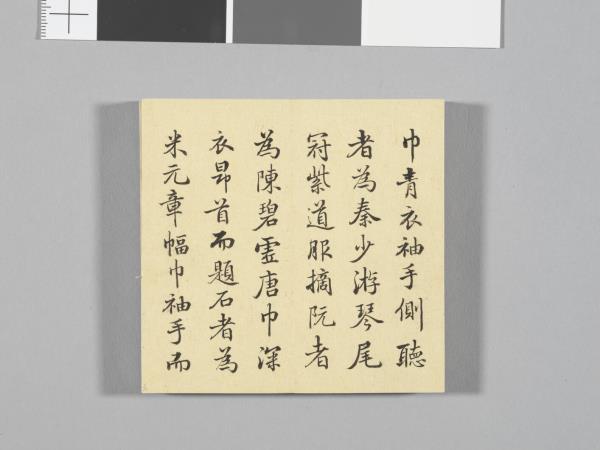 巾青衣袖手側聽
者為秦少游琴尾
冠紫道服摘阮者
為陳碧虛唐巾深
衣昂首而題石者為
米元章幅巾袖手而